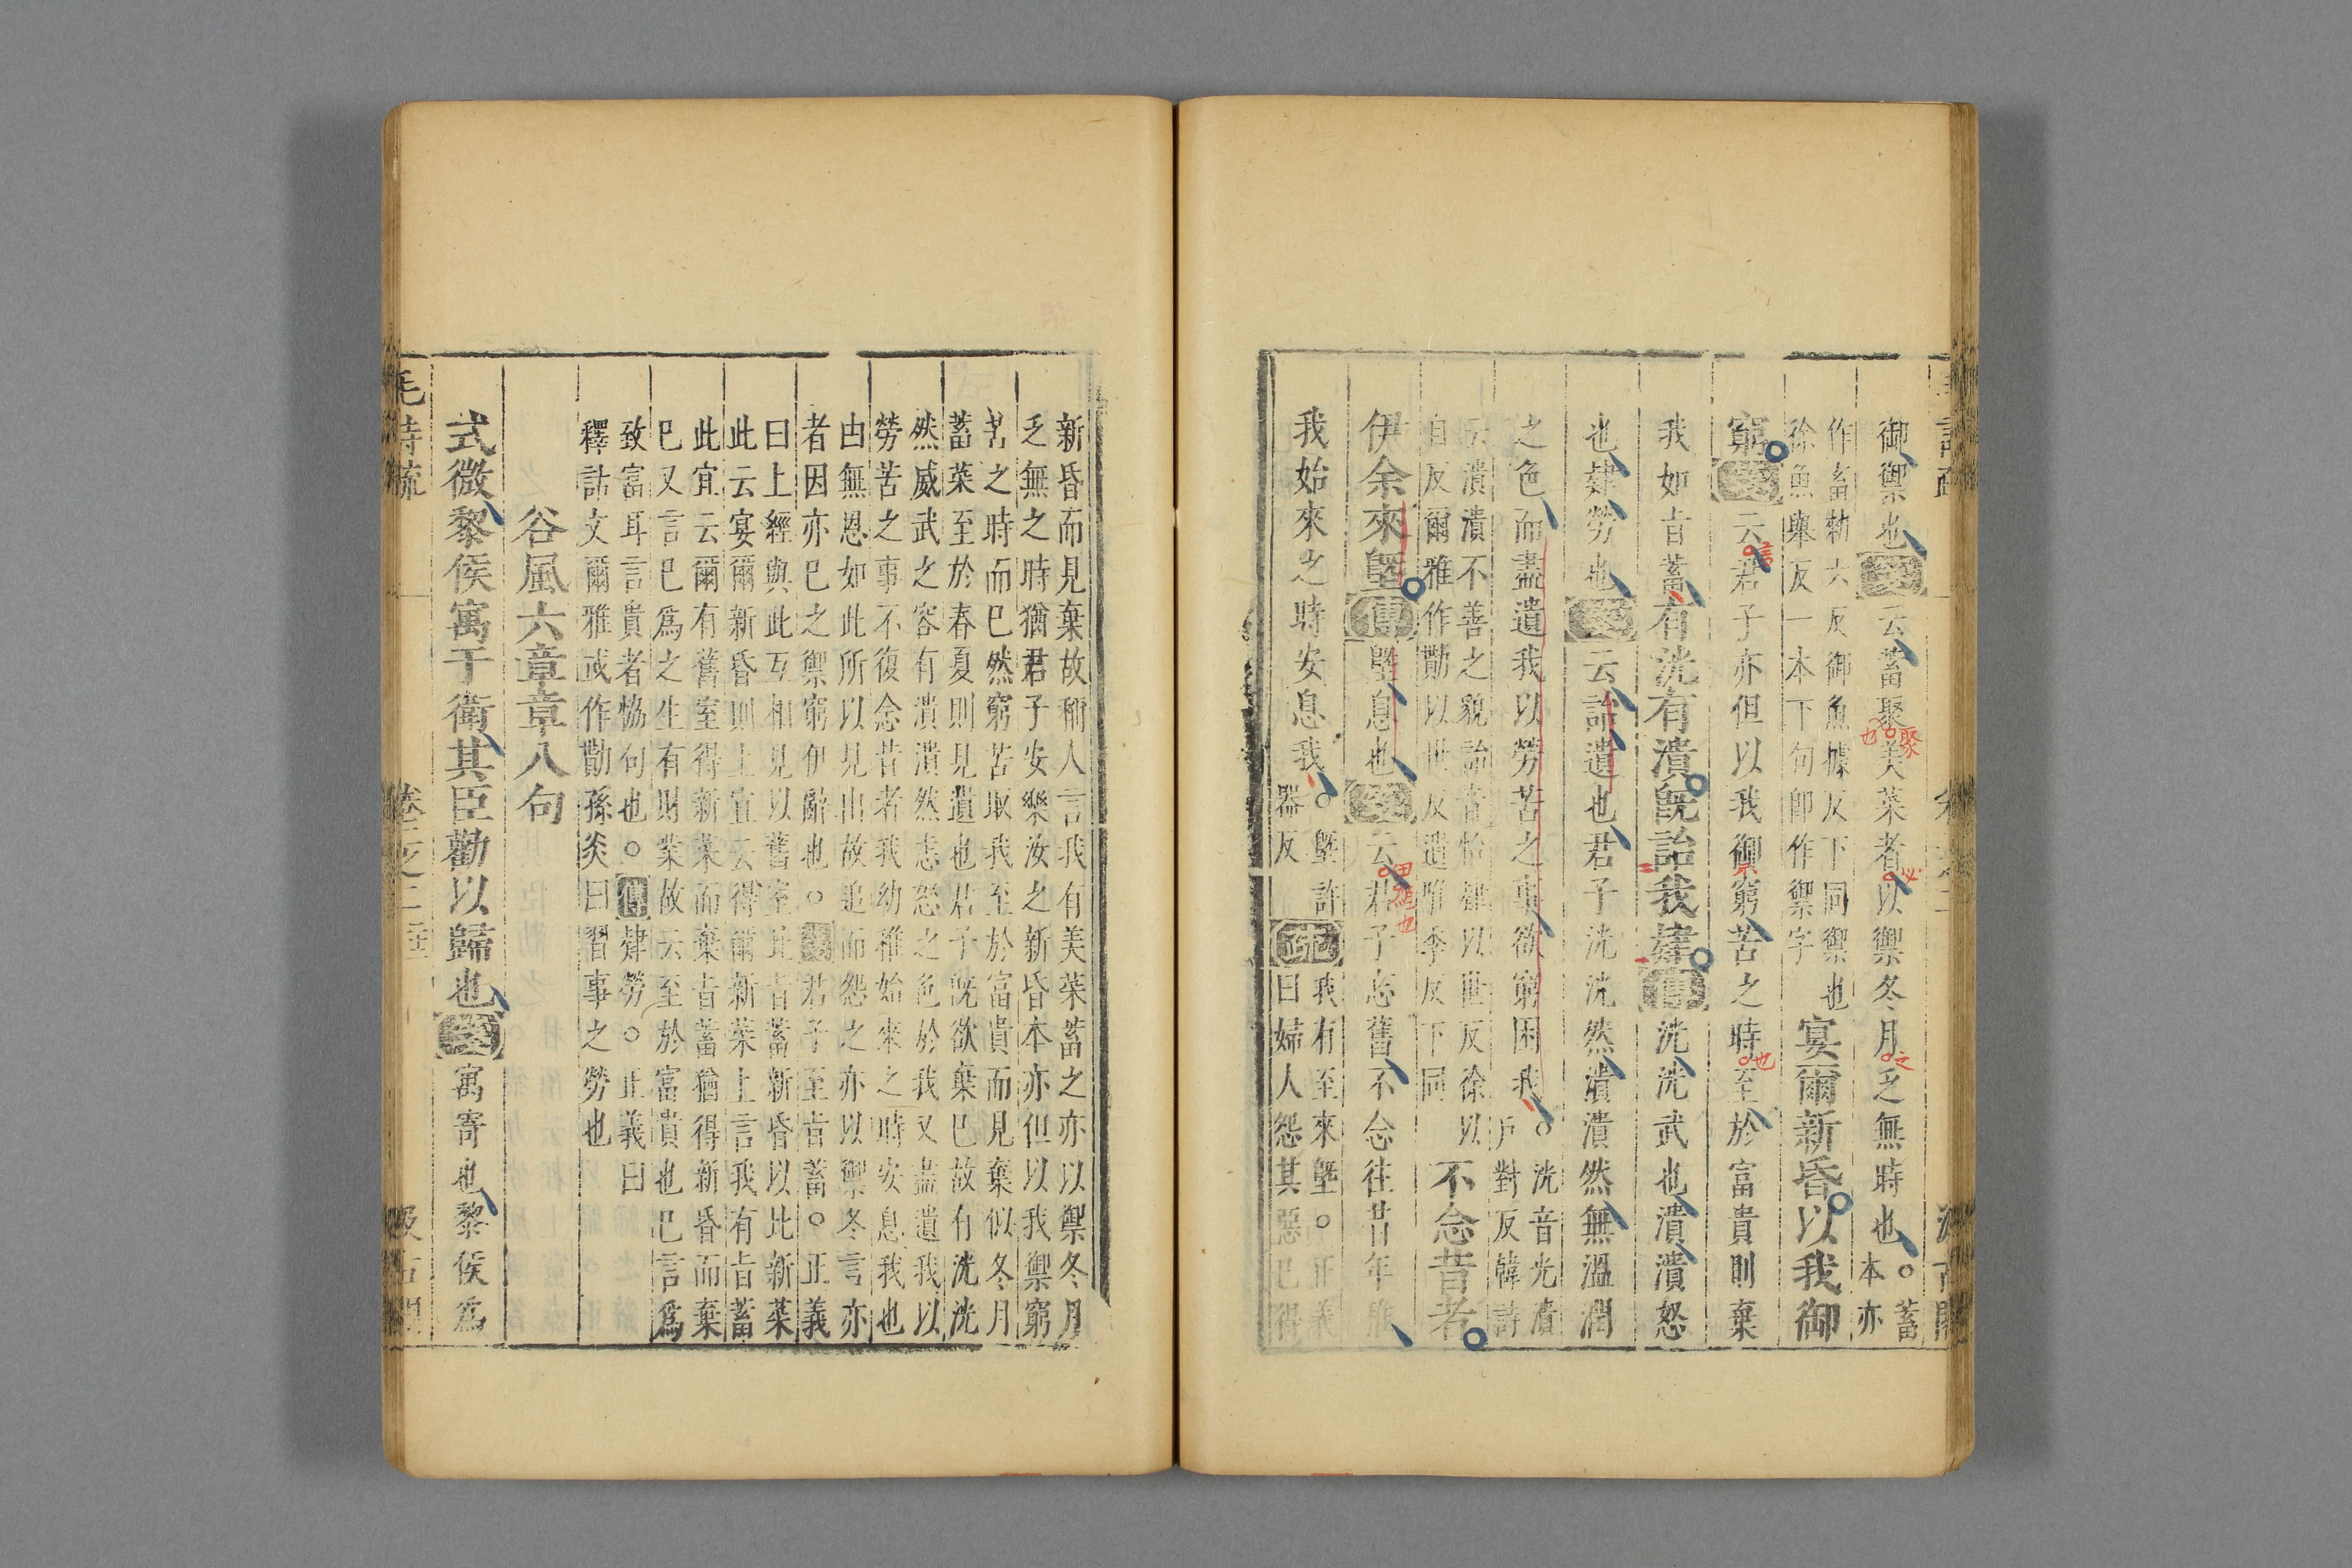 御禦也箋云蓄聚美菜者以禦冬月乏無時也○蓄本亦
作畜勑六反御魚據反下同禦也
徐魚舉反一本下句即作禦字
宴爾新昏以我御
窮箋云君子亦但以我御窮苦之時至於富貴則棄
我如旨蓄有洸有潰旣詒我肄傳洸洸武也潰潰怒
也肄勞也箋云詒遺也君子洸洸然潰潰然無溫潤
之色而盡遺我以勞苦之事欲窮困我○洸音光潰戶對反韓詩
云潰潰不善之貌詒音怡肄以世反徐以
自反爾雅作勩以世反遺唯季反下同
不念昔者
伊余來塈傳塈息也箋云君子忘舊不念往昔年稚
我始來之時安息我○塈許器反
疏我有至來塈○正義
曰婦人怨其惡已得
新昏而見棄故稱人言我有美菜蓄之亦以禦冬月
乏無之時猶君子安樂汝之新昏本亦但以我禦窮
苦之時而已然窮苦取我至於富貴而見棄似冬月
蓄菜至於春夏則見遺也君子旣欲棄已故有洸洗
然威武之容有潰潰然恚怒之色於我又盡遺我以
勞苦之事不復念昔者我幼稚始來之時安息我也
由無恩如此所以見出故追而怨之亦以禦冬言亦
者因亦已之禦窮伊辭也○箋君子至旨蓄○正義
曰上經與此互相見以舊室比旨蓄新昏以比新菜
此云宴爾新昏則上宜云得爾新菜上言我有旨蓄
此宜云爾有舊室得新菜而棄旨蓄猶得新昏而棄
已又言已爲之生有財業故云至於富貴也已言爲
致富耳言貴者協句也○傳肄勞○正義曰
釋詁文爾雅或作勩孫炎曰習事之勞也
谷風六章章八句
式微黎侯寓于衛其臣勸以歸也箋寓寄也黎侯爲
毛詩疏
卷二之二